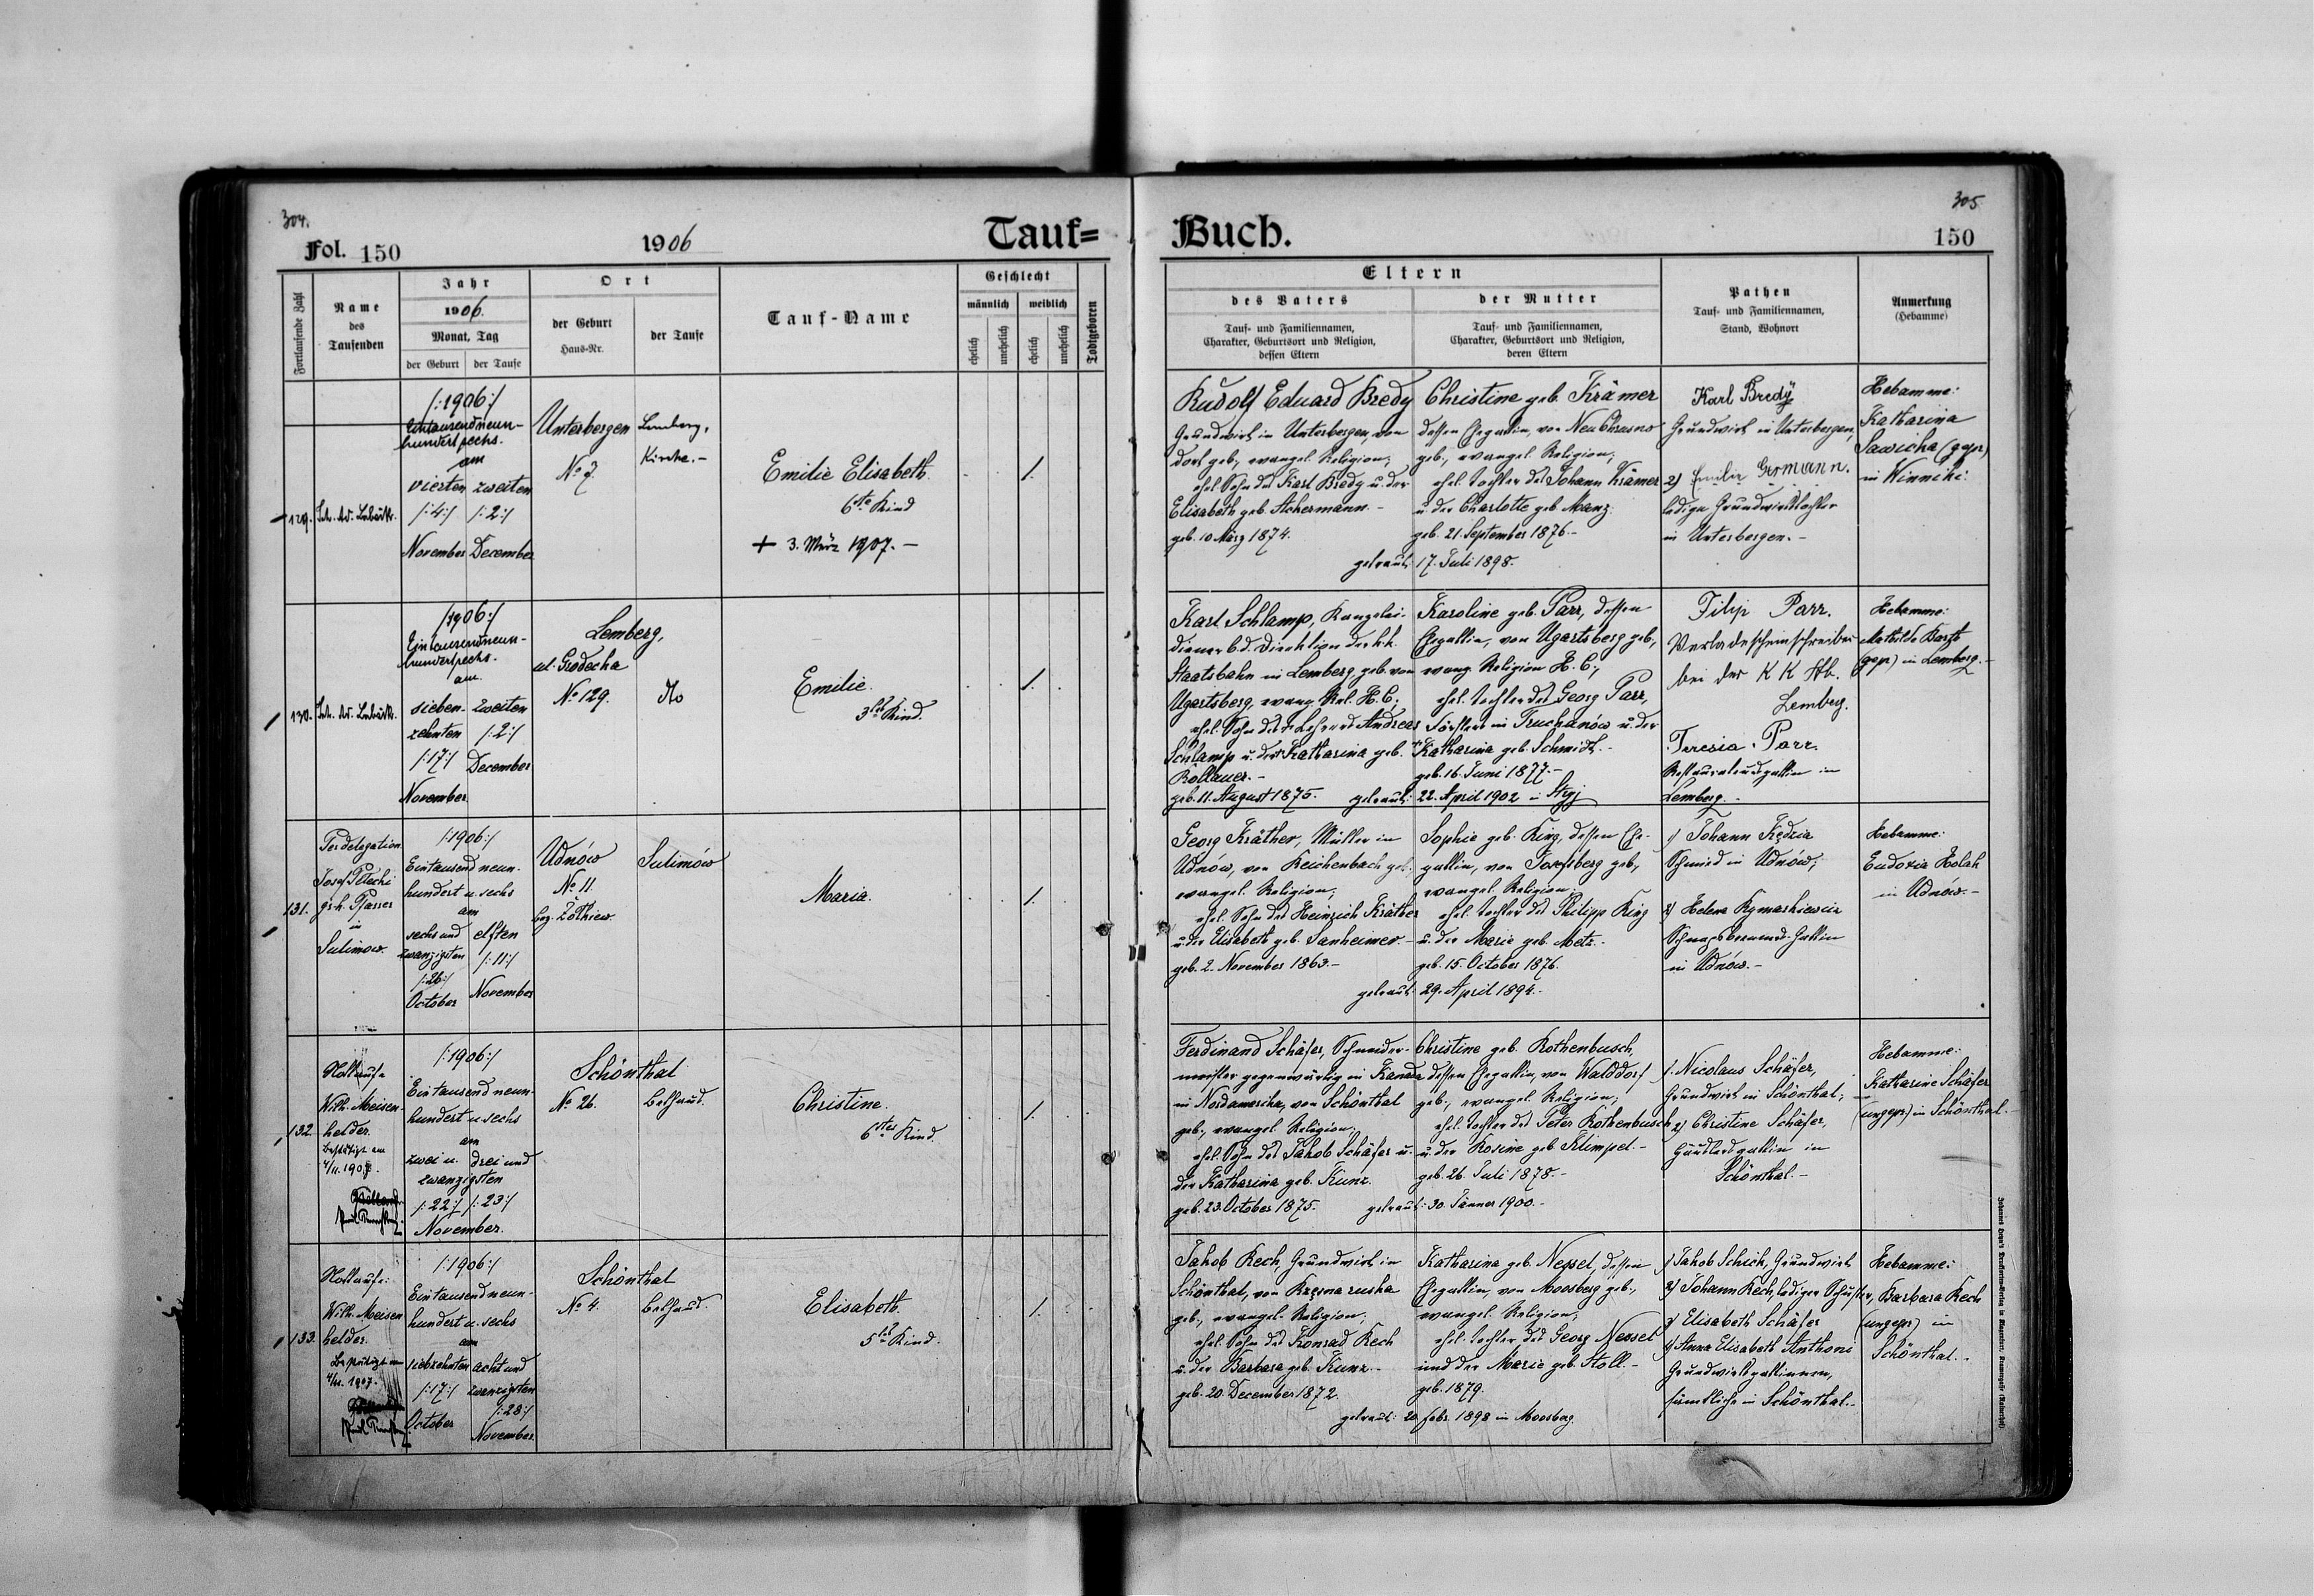 304.
Fol. 150
1906
Tauf=
Fortlaufende Zahl
Name
des
Taufenden
Jahr
1906.
Monat, Tag
der Geburt
der Taufe
Ort
der Geburt
Haus-Nr.
der Taufe
Tauf-Name
Geschlecht
männlich
weiblich
ehelich
unehelich
ehelich
unehelich
Todtgeboren
129.
/:1906:/
Eintausendneun-
hundert sechs.
am
vierten zweiten
/:4:/ /:2:/
November December
Unterbergen
No 7.
Lemberg,
Kirche.-
Emilie Elisabeth.
6te Kind
+ 3. März 1907.-
1.
130.
/:1906:/
Eintausendneun-
hundert sechs.
am
sieben- zweiten
zehnten /:2:/
/:17:/ December
November.
Lemberg,
ul. Grodecka
No 129.
Emilie.
3tes Kind.
1.
131.
Per delegation
Josef
Pfarrer
in
Sulimow.
/:1906:/
Eintausend neun-
hundert u. sechs
am
sechs und elften
zwanzigsten /:11:/
/:26:/
October November
Udnów
No 11.
bez. Żółkiew.
Sulimów
Maria.
1.
132.
Nottaufe
Wilh. Meisen-
helder.
bestätigt am
/:1906:/
Eintausend neun-
hundert u. sechs
am
zwei u. drei und
zwanzigsten
/:22:/ /:23:/
November.
Schönthal
No 26.
Bethaus.
Christine.
6tes Kind.
1.
133.
Nottaufe:
Wilh. Meisen
helder.
Bestätigt am
/:1906:/
Eintausend neun-
hundert u. sechs
am
siebzehnten acht und
/:17:/ zwanzigsten
/:28:/
October
November.
Schönthal
No 4.
Bethaus.
Elisabeth.
5tes Kind.
1.
305
Buch.
150
Eltern
des Vaters
Tauf- und Familiennamen,
Charakter, Geburtsort und Religion,
dessen Eltern
der Mutter
Tauf- und Familiennamen,
Charakter, Geburtsort und Religion,
deren Eltern
Pathen
Tauf- und Familiennamen,
Stand, Wohnort
Anmerkung
(Hebamme)
Rudolf Eduard Bredy
Grundwirt in Unterbergen, von
dort geb., evangel. Religion;
ehel. Sohn des Karl Bredy u. der
Elisabeth geb. Achermann.-
geb. 10 März 1874.
Christine geb. Krämer
dessen Ehegattin, von Neu Chrusno
geb., evangel. Religion;
ehel. Tochter des Johann Krämer
u. der Charlotte geb. Manz.
geb. 21. September 1876.-
getraut: 17. Juli 1898.
Karl Bredÿ
Grundwirt in Unterbergen,
2) Emilie Germann.
ledige Grundwirtstochter
in Unterbergen.-
Hebamme:
Katharina
Sawicka (gepr)
in Winniki.
Karl Schlamp, Kanzlei-
diener b.d. Direktion der k.k.
Staatsbahn in Lemberg, geb. von
Ugartsberg, evang. Rel. H.C.;
ehel. Sohn des Lehrers Andreas
Schlamp u. der Katharina geb.
Rollauer.-
geb. 11. August 1875.
Karoline geb. Parr, dessen
Ehegattin, von Ugartsberg geb.,
evang. Religion H.C.;
ehel. Tochter des Georg Parr,
Försters in Truchanów u. der
Katharina geb. Schmidt.-
geb. 16. Juni 1877.-
getraut: 22. April 1902 in Stryj
Filip Parr.
Verladescheinschreiber
bei der K K Stb.
Lemberg.
Teresia Parr.
Lemberg.-
Hebamme:
Mathilde
(gepr) in Lemberg.-
Georg Kräther, Müller in
Udnów, von Reichenbach geb.
evangel. Religion;
ehel. Sohn des Heinrich Kräther
u. der Elisabeth geb. Sanheimer.-
geb. 2. November 1863.-
Sophie geb. King, dessen Ehe-
gattin, von Josefsberg geb.,
evangel. Religion;
ehel. Tochter des Philipp King
u. der Marie geb. Metz.-
geb. 15. October 1876.
getraut: 29. April 1894.-
1) Johann Kędzia
Schmied in Udnów;
2) Helena Rymarkiewicz
in Udnów.-
Hebamme:
Eudoxia Holak
in Udnów.-
Ferdinand Schäfer, Schneider-
meister gegenwärtig in Kanada
in Nordamerika, von Schönthal
geb., evangel. Religion;
ehel. Sohn des Jakob Schäfer u.
der Katharina geb. Kunz.
geb. 23. October 1875.
Christine geb. Rothenbusch,
dessen Ehegattin, von Walddorf
geb., evangel. Religion;
ehel. Tochter des Peter Rothenbusch
u. der Rosine geb. Klimpel.-
geb. 26. Juli 1878.-
getraut: 30. Jänner 1900.-
1. Nicolaus Schäfer,
Grundwirt in Schönthal;
2) Christine Schäfer,
Häuslersgattin in
Schönthal.-
Hebamme:
Katharine Schäfer
(ungepr) in Schönthal.-
Jakob Rech, Grundwirt in
Schönthal, von Kręzna ruska
geb., evangel. Religion;
ehel. Sohn des Konrad Rech
u. der Barbara geb. Kunz.-
geb. 20. December 1872.
Katharina geb. Nessel, dessen
Ehegattin, von Moosberg geb.,
evangel. Religion;
ehel. Tochter des Georg Nessel
und der Marie geb. Stoll.-
geb. 1879.
getraut: 20. Febr. 1898 in Moosberg.
1) Jakob Schick, Grundwirt
2) Johann Rech, lediger Schuster,
3) Elisabeth Schäfer
4) Anna Elisabeth Anthoni
Grundwirtsgattinnen,
sämtliche in Schönthal.-
Hebamme:
Barbara Rech
(ungepr) in
Schönthal.-